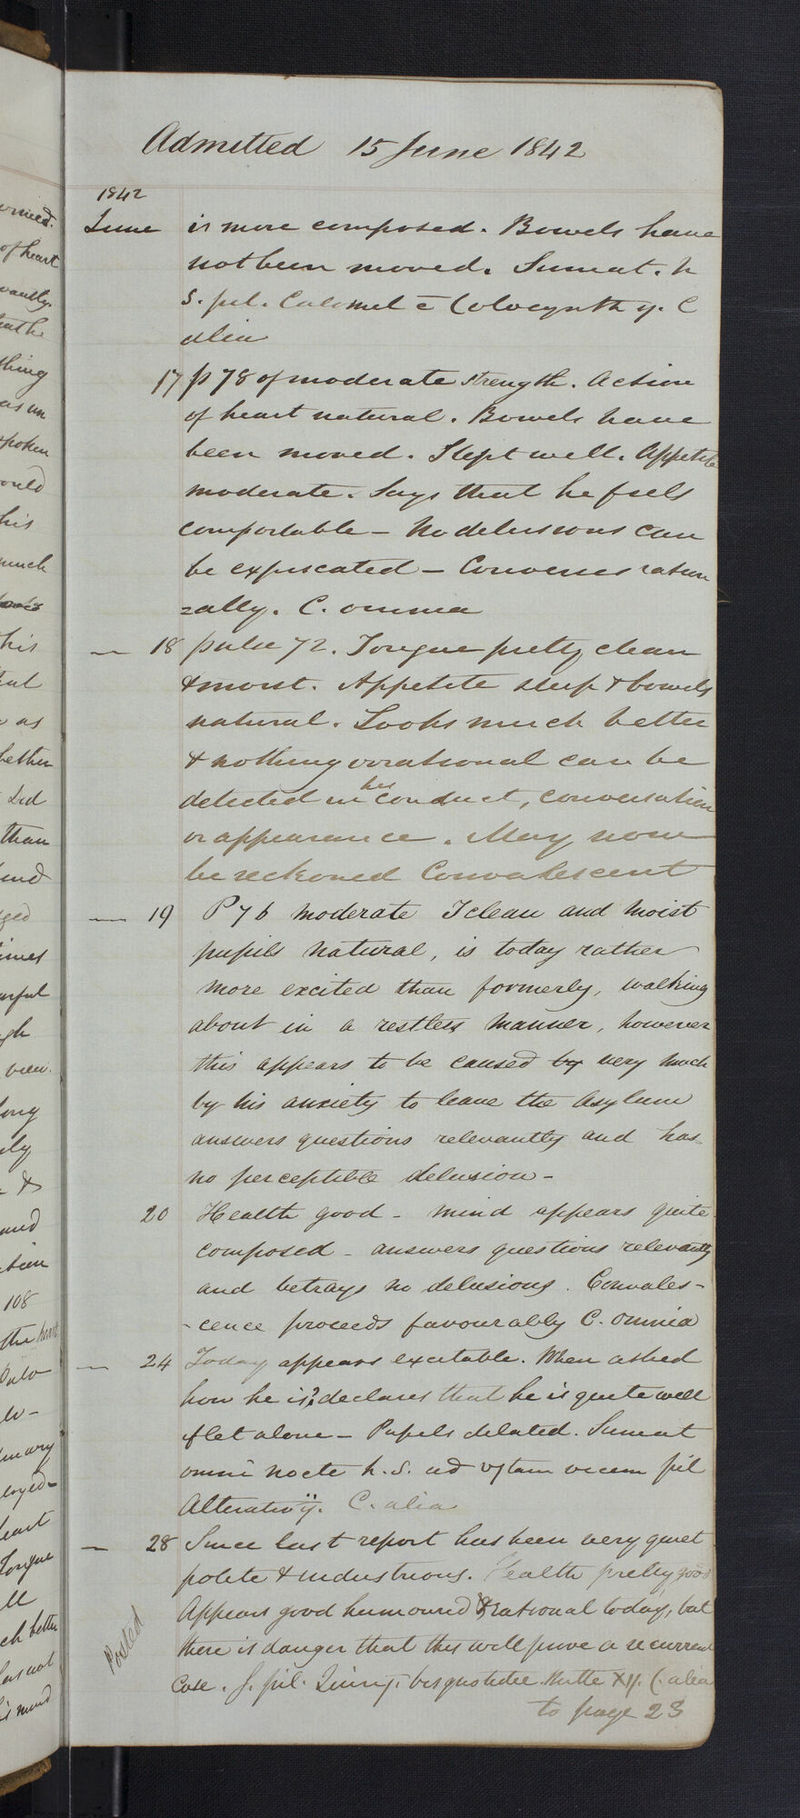 Admitted 15 June 1842
1842
June is more composed. Bowels have
not been moved. Sumat. h
s. pil. Calomel c̄ Colocynth ij. C
alia
17 p 78 of moderate strength. Action
of heart natural. Bowels have
been moved. Slept well. Appetite
moderate. Says that he feels
comfortable - No delusions can
be expiscated - Converses ration
ally. C. omnia
— 18 pulse 72. Tongue pretty clean
& moist. Appetite sleep & bowels
natural. Looks much better
& nothing irrational can be
detected in his conduct, conversation
or appearance. May now
be reckoned Convalescent
— 19 P 76 moderate T clean and moist
pupils natural, is today rather
more excited than formerly, walking
about in a restless manner, however
this appears to be caused by very much
by his anxiety to leave the Asylum
answers questions relevantly and has
no perceptible delusion -
20 Health good - mind appears quite
composed - answers questions relevantly
and betrays no delusions. Convales-
-cence proceeds favourably C. omnia
— 24 Today appears excitable. When asked
how he is? declares that he is quite well
if let alone - Pupils dilated. Sumat
omni nocte h.s. ad vjtam vicem pil
Alterativ ij. C. alia
— 28 Since last report has been very quiet
polite & industrious. Health pretty good
Appears good humoured & rational today, but
there is danger that this will prove a recurrent
Case. pil. bis quotidie Mitte xij. C. alia
to page 23
Posted